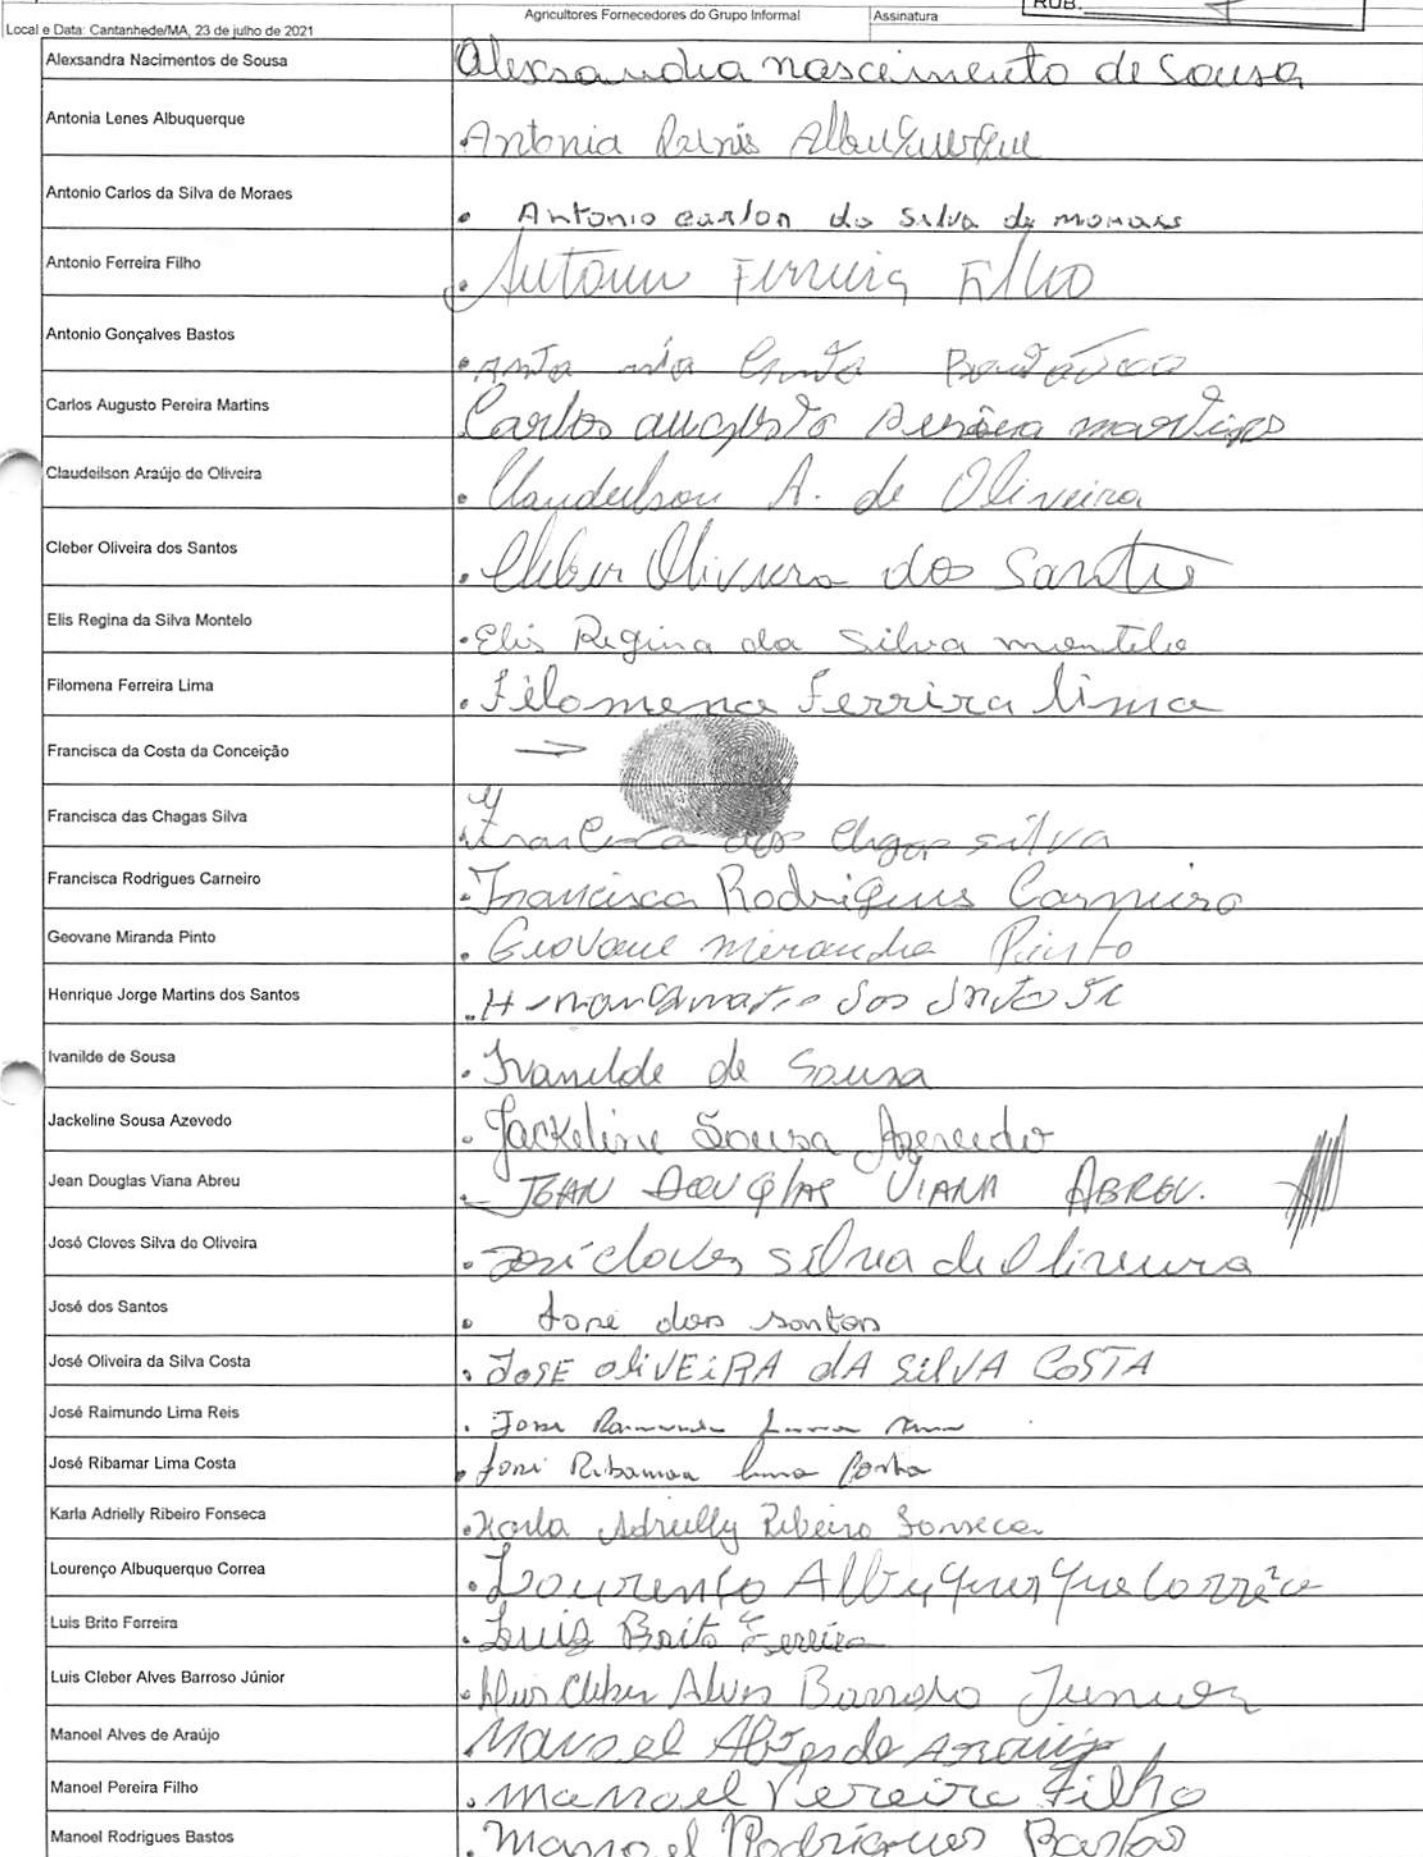 RUB.
Agricultores Fornecedores do Grupo Informal Assinatura
Local e Data: Cantanhede/MA, 23 de julho de 2021
Alexsandra Nacimentos de Sousa Alexsandra nascimento de Sousa
Antonia Lenes Albuquerque Antonia Albuquerque
Antonio Carlos da Silva de Moraes Antonio carlos da Silva de moraes
Antonio Ferreira Filho Ferreira Filho
Antonio Gonçalves Bastos
Carlos Augusto Pereira Martins Carlos augusto Pereira martins
Claudeilson Araújo de Oliveira Claudeilson A. de Oliveira
Cleber Oliveira dos Santos Cleber Oliveira dos Santos
Elis Regina da Silva Montelo Elis Regina da Silva montelo
Filomena Ferreira Lima Filomena Ferrira lima
Francisca da Costa da Conceição
Francisca das Chagas Silva silva
Francisca Rodrigues Carneiro Francisca Rodrigues Carneiro
Geovane Miranda Pinto Geovane miranda Pinto
Henrique Jorge Martins dos Santos dos
Ivanilde de Sousa Ivanilde de Sousa
Jackeline Sousa Azevedo Jackeline Sousa Azevedo
Jean Douglas Viana Abreu JEAN DOUGlAS VIANA ABREU.
José Cloves Silva de Oliveira José cloves silva de Oliveira
José dos Santos José dos santos
José Oliveira da Silva Costa JOSE OliVEiRA dA SilVA COSTA
José Raimundo Lima Reis José
José Ribamar Lima Costa José Ribamar lima Costa
Karla Adrielly Ribeiro Fonseca Karla Adrielly Ribeiro Fonseca
Lourenço Albuquerque Correa Lourenço Albuquerque Corrêa
Luis Brito Ferreira Luis Brito Ferreira
Luis Cleber Alves Barroso Júnior Luis Cleber Alves Barroso Junior
Manoel Alves de Araújo Manoel Alves de Araujo
Manoel Pereira Filho manoel Pereira Filho
Manoel Rodrigues Bastos manoel Rodrigues Bastos